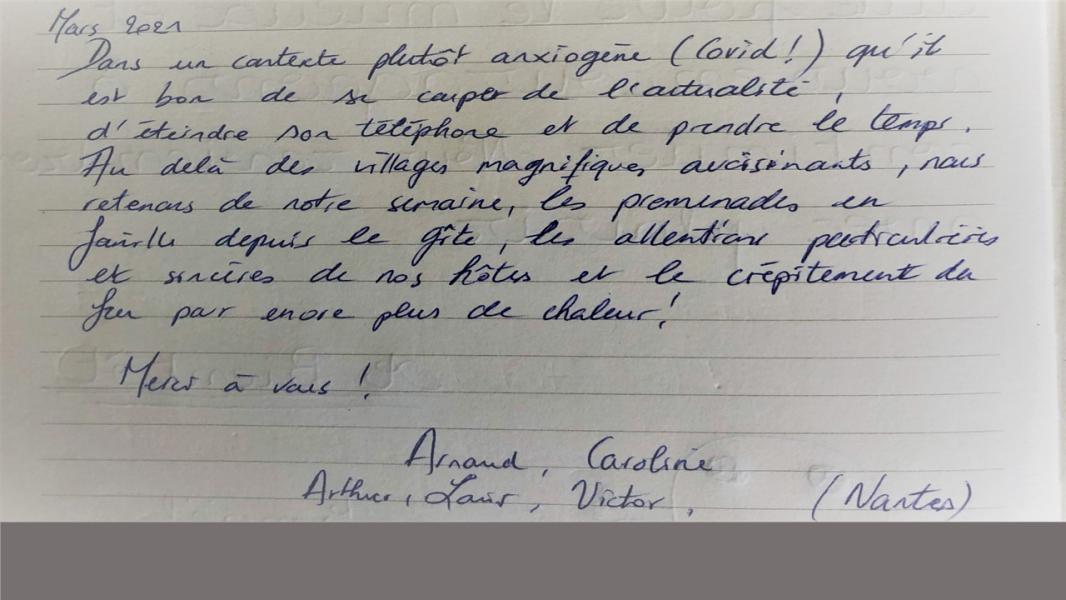 Mars 2021
Dans un contexte plutôt anxiogène (Covid!) qu'il
est bon de se couper de l'actualité,
d'éteindre son téléphone et de prendre le temps.
Au delà des villages magnifiques avoisinants, nous
retenons de notre semaine, les promenades en
famille depuis le gîte, les attentions particulières
et sincères de nos hôtes et le crépitement du
feu pour encore plus de chaleur!
Merci à vous !
Arnaud, Caroline
Arthur, Louis, Victor, (Nantes)